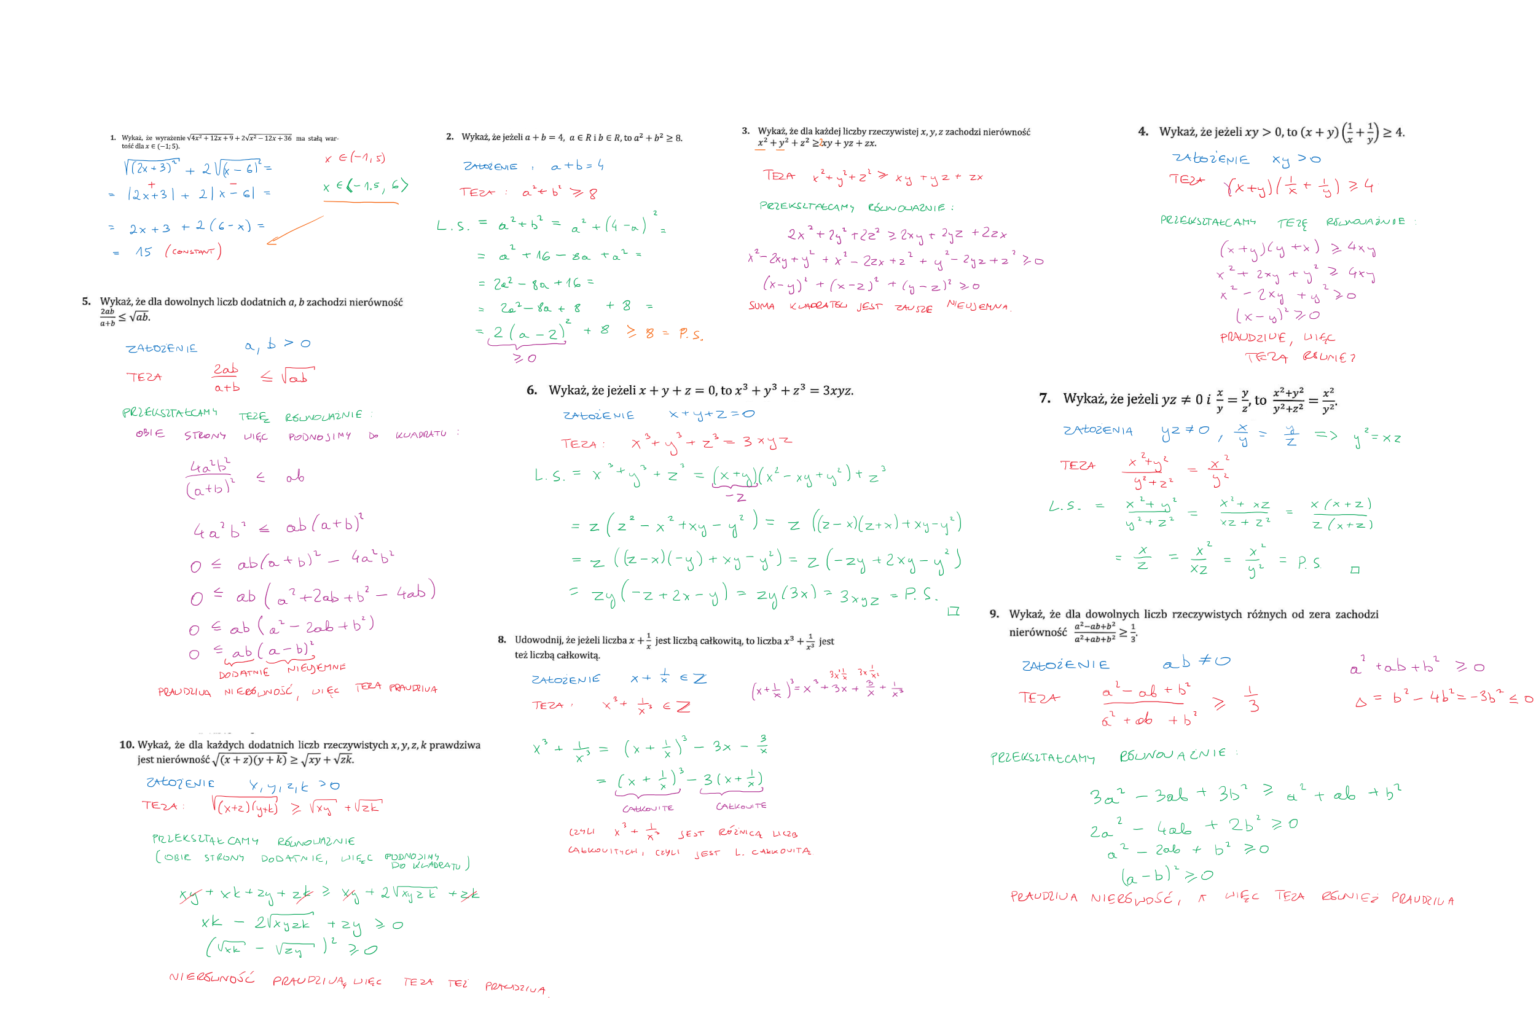 1. Wykaż, że wyrażenie √(4x² + 12x + 9) + 2√(x² − 12x + 36) ma stałą war-
tość dla x ∈ (−1; 5).
√((2x+3)²) + 2√((x−6)²) =
= |2x+3| + 2|x−6| =
+ −
= 2x+3 + 2(6−x) =
= 15 (CONSTANT)
x ∈ (−1, 5)
x ∈ (−1.5, 6)
2. Wykaż, że jeżeli a + b = 4, a ∈ R i b ∈ R, to a² + b² ≥ 8.
ZAŁOŻENIE, a+b=4
TEZA: a²+b² ≥ 8
L.S. = a²+b² = a² + (4−a)² =
= a² + 16 − 8a + a² =
= 2a² − 8a + 16 =
= 2a² − 8a + 8 + 8 =
= 2(a−2)² + 8 ≥ 8 = P.S.
≥ 0
3. Wykaż, że dla każdej liczby rzeczywistej x, y, z zachodzi nierówność
x² + y² + z² ≥ xy + yz + zx.
TEZA x²+y²+z² ≥ xy + yz + zx
PRZEKSZTAŁCAMY RÓWNOWAŻNIE:
2x² + 2y² + 2z² ≥ 2xy + 2yz + 2zx
x²−2xy+y² + x²−2zx+z² + y²−2yz+z² ≥ 0
(x−y)² + (x−z)² + (y−z)² ≥ 0
SUMA KWADRATÓW JEST ZAWSZE NIEUJEMNA.
4. Wykaż, że jeżeli xy > 0, to (x + y)(1/x + 1/y) ≥ 4.
ZAŁOŻENIE xy > 0
TEZA (x+y)(1/x + 1/y) ≥ 4
PRZEKSZTAŁCAMY TEZĘ RÓWNOWAŻNIE:
(x+y)(y+x) ≥ 4xy
x² + 2xy + y² ≥ 4xy
x² − 2xy + y² ≥ 0
(x−y)² ≥ 0
PRAWDZIWE, WIĘC
TEZA RÓWNIEŻ
5. Wykaż, że dla dowolnych liczb dodatnich a, b zachodzi nierówność
2ab/(a+b) ≤ √ab.
ZAŁOŻENIE a, b > 0
TEZA 2ab/(a+b) ≤ √ab
PRZEKSZTAŁCAMY TEZĘ RÓWNOWAŻNIE:
OBIE STRONY WIĘC PODNOSIMY DO KWADRATU:
4a²b²/(a+b)² ≤ ab
4a²b² ≤ ab(a+b)²
0 ≤ ab(a+b)² − 4a²b²
0 ≤ ab(a²+2ab+b² − 4ab)
0 ≤ ab(a²−2ab+b²)
0 ≤ ab(a−b)²
DODATNIE NIEUJEMNE
PRAWDZIWA NIERÓWNOŚĆ, WIĘC TEZA PRAWDZIWA
6. Wykaż, że jeżeli x + y + z = 0, to x³ + y³ + z³ = 3xyz.
ZAŁOŻENIE x+y+z=0
TEZA: x³+y³+z³ = 3xyz
L.S. = x³+y³+z³ = (x+y)(x²−xy+y²)+z³
−z
= z(z²−x²+xy−y²) = z((z−x)(z+x)+xy−y²)
= z((z−x)(−y)+xy−y²) = z(−zy+2xy−y²)
= zy(−z+2x−y) = zy(3x) = 3xyz = P.S. □
7. Wykaż, że jeżeli yz ≠ 0 i x/y = y/z, to (x²+y²)/(y²+z²) = x²/y².
ZAŁOŻENIA yz ≠ 0, x/y = y/z => y²=xz
TEZA (x²+y²)/(y²+z²) = x²/y²
L.S. = (x²+y²)/(y²+z²) = (x²+xz)/(xz+z²) = x(x+z)/z(x+z)
= x/z = x²/xz = x²/y² = P.S □
8. Udowodnij, że jeżeli liczba x + 1/x jest liczbą całkowitą, to liczba x³ + 1/x³ jest
też liczbą całkowitą.
ZAŁOŻENIE x + 1/x ∈ Z
TEZA: x³ + 1/x³ ∈ Z
3x² 1/x 3x 1/x²
(x+1/x)³ = x³ + 3x + 3/x + 1/x³
x³ + 1/x³ = (x + 1/x)³ − 3x − 3/x
= (x + 1/x)³ − 3(x+1/x)
CAŁKOWITE CAŁKOWITE
CZYLI x³ + 1/x³ JEST RÓŻNICĄ LICZB
CAŁKOWITYCH, CZYLI JEST L. CAŁKOWITĄ
9. Wykaż, że dla dowolnych liczb rzeczywistych różnych od zera zachodzi
nierówność (a²−ab+b²)/(a²+ab+b²) ≥ 1/3.
ZAŁOŻENIE ab ≠ 0
TEZA (a²−ab+b²)/(a²+ab+b²) ≥ 1/3
a²+ab+b² ≥ 0
Δ = b²−4b² = −3b² ≤ 0
PRZEKSZTAŁCAMY RÓWNOWAŻNIE:
3a² − 3ab + 3b² ≥ a² + ab + b²
2a² − 4ab + 2b² ≥ 0
a² − 2ab + b² ≥ 0
(a−b)² ≥ 0
PRAWDZIWA NIERÓWNOŚĆ, A WIĘC TEZA RÓWNIEŻ PRAWDZIWA
10. Wykaż, że dla każdych dodatnich liczb rzeczywistych x, y, z, k prawdziwa
jest nierówność √((x + z)(y + k)) ≥ √xy + √zk.
ZAŁOŻENIE x, y, z, k > 0
TEZA: √((x+z)(y+k)) ≥ √xy + √zk
PRZEKSZTAŁCAMY RÓWNOWAŻNIE
(OBIE STRONY DODATNIE, WIĘC PODNOSIMY
DO KWADRATU)
xy + xk + zy + zk ≥ xy + 2√xyzk + zk
xk − 2√xyzk + zy ≥ 0
(√xk − √zy)² ≥ 0
NIERÓWNOŚĆ PRAWDZIWA, WIĘC TEZA TEŻ PRAWDZIWA